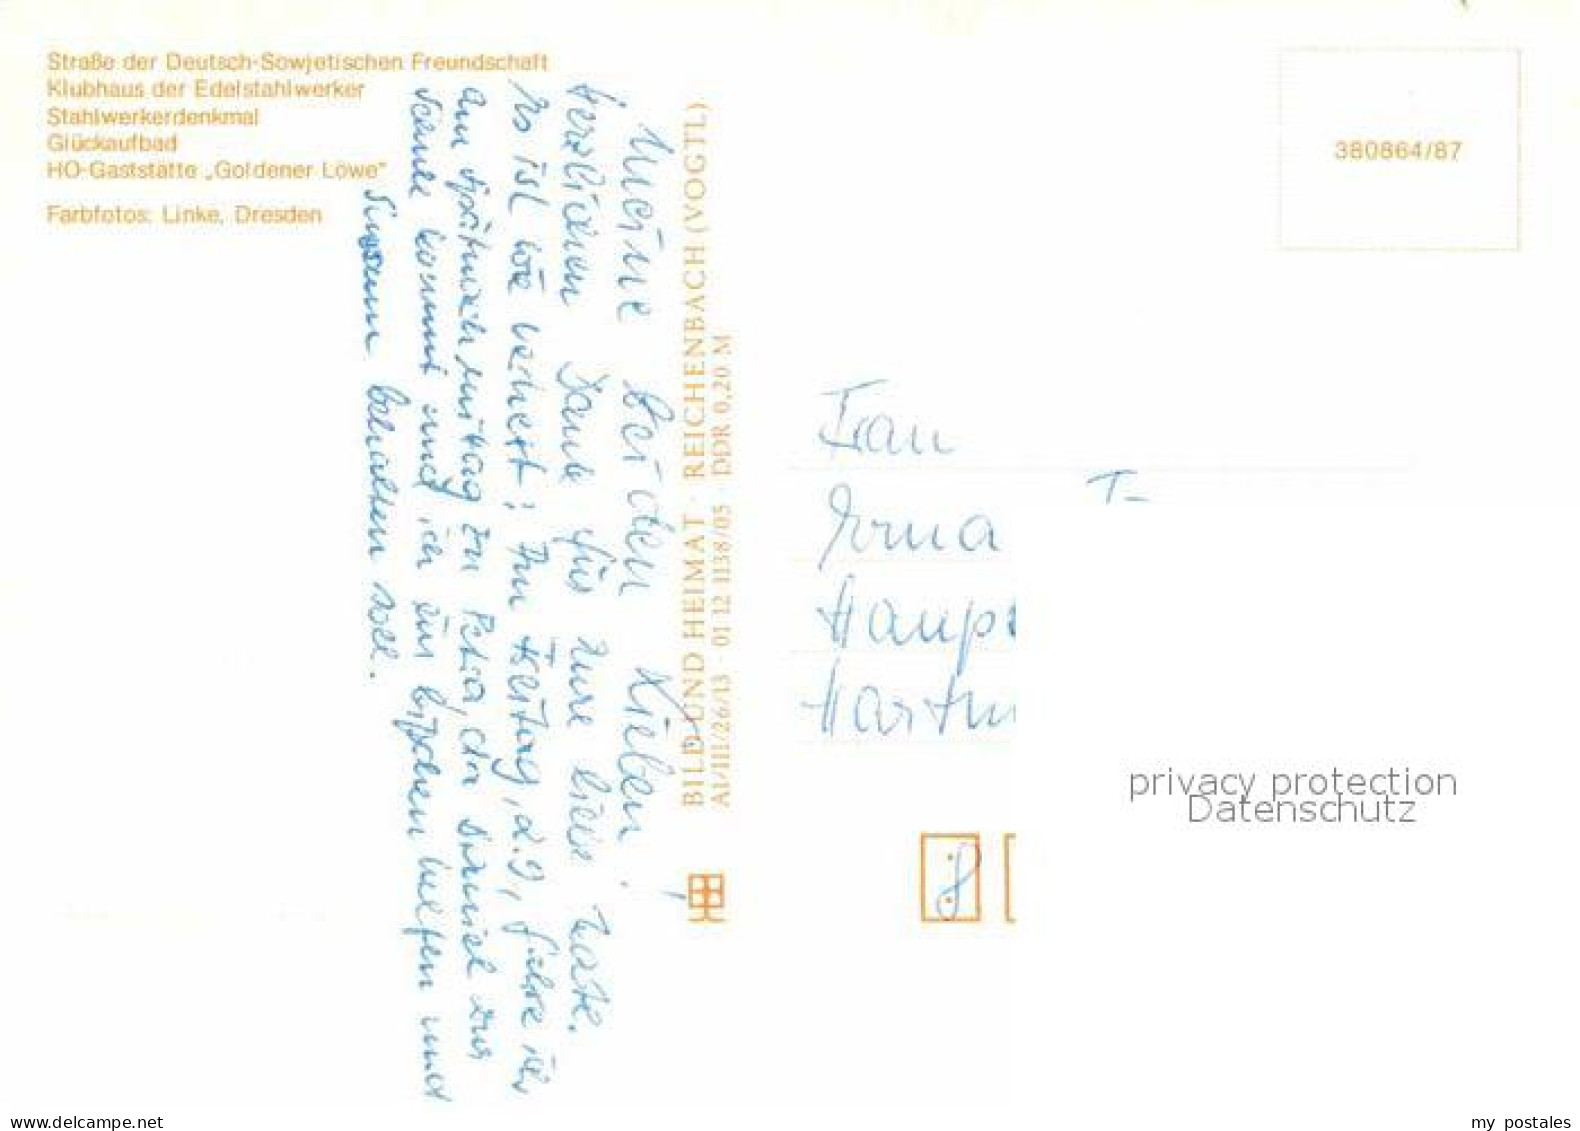 Straße der Deutsch-Sowjetischen Freundschaft
Klubhaus der Edelstahlwerker
Stahlwerkerdenkmal
Glückaufbad
HO-Gaststätte „Goldener Löwe"
Farbfotos: Linke, Dresden
380864/87
Meine beiden Lieben!
Herzlichen Dank für Eure liebe Karte.
Es ist wie verhext: Am Freitag, d. 9., fahre ich
am Spätnachmittag zu Petra, da Daniel zur
Schule kommt und ich ein bißchen helfen und
Susann behalten soll.
BILD UND HEIMAT · REICHENBACH (VOGTL)
A1/III/26/13 · 01 12 1138/05 · DDR 0,20 M
Frau
T-
Erna
Haup
Hartm
privacy protection
Datenschutz
8
www.delcampe.net
my postales